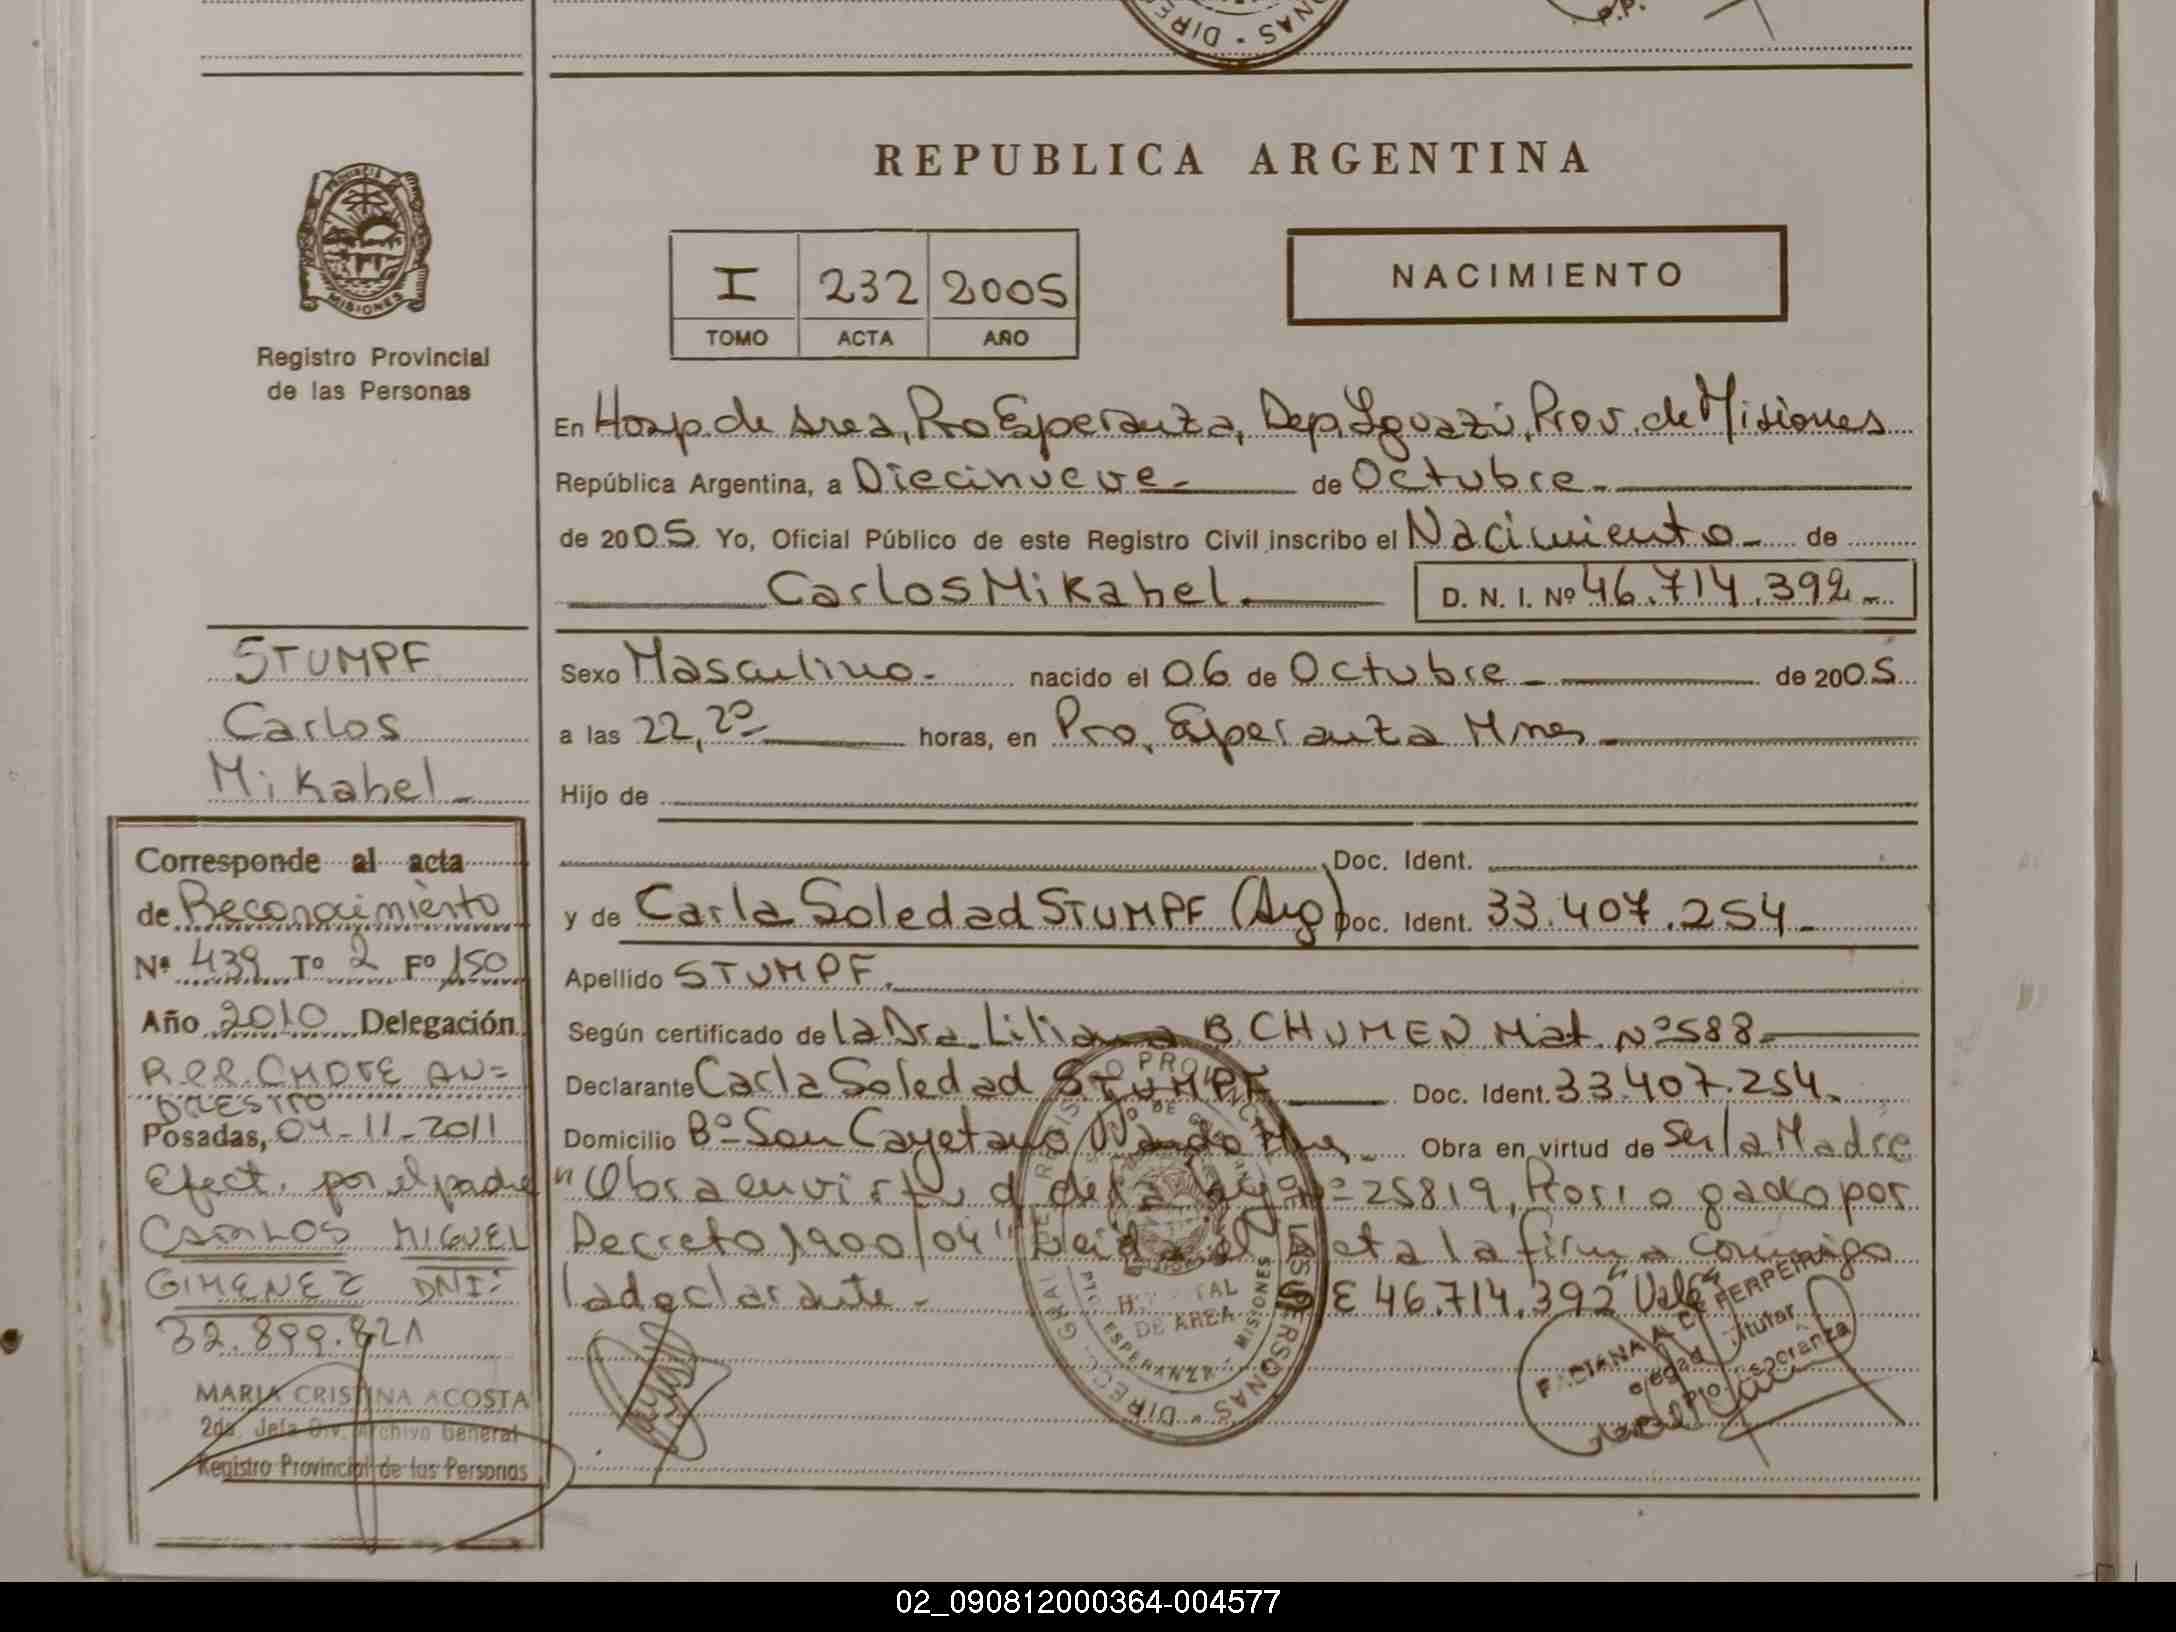 REPUBLICA ARGENTINA
PROVINCIA
MISIONES
Registro Provincial
de las Personas
I 232 2005
TOMO ACTA AÑO
NACIMIENTO
En Hosp. de Area, Pto Esperanza, Dep. Iguazú, Prov. de Misiones
República Argentina, a Diecinueve.- de Octubre.-
de 2005 Yo, Oficial Público de este Registro Civil inscribo el Nacimiento.- de
Carlos Mikahel.- D. N. I. Nº 46.714.392.-
STUMPF
Carlos
Mikahel.-
Sexo Masculino.- nacido el 06 de Octubre.- de 2005
a las 22,20 horas, en Pto. Esperanza Mnes.-
Hijo de
Doc. Ident.
y de Carla Soledad STUMPF (Arg) Doc. Ident. 33.407.254.-
Apellido STUMPF.
Según certificado de la Dra. Liliana B CHUMEN Mat. Nº 588.-
Declarante Carla Soledad STUMPF Doc. Ident. 33.407.254.
Domicilio Bº San Cayetano Obra en virtud de ser la Madre
"Obra en virtud de la Ley Nº 25819, Prorrogado por
Decreto 1900/04" Leida el Acta la firma conmigo
la declarante.- S/E 46.714.392 "Vale"
Corresponde al acta
de Reconocimiento
Nº 439 Tº 2 Fº 150
Año 2010 Delegación
R.P.P. CMDTE AN=
DRESITO
Posadas, 04-11-2011
Efect. por el padre
CARLOS MIGUEL
GIMENEZ DNI:
32.899.821
MARIA CRISTINA ACOSTA
2da. Jefa Div. Archivo General
Registro Provincial de las Personas
HOSPITAL
DE AREA
ESPERANZA - MISIONES
02_090812000364-004577